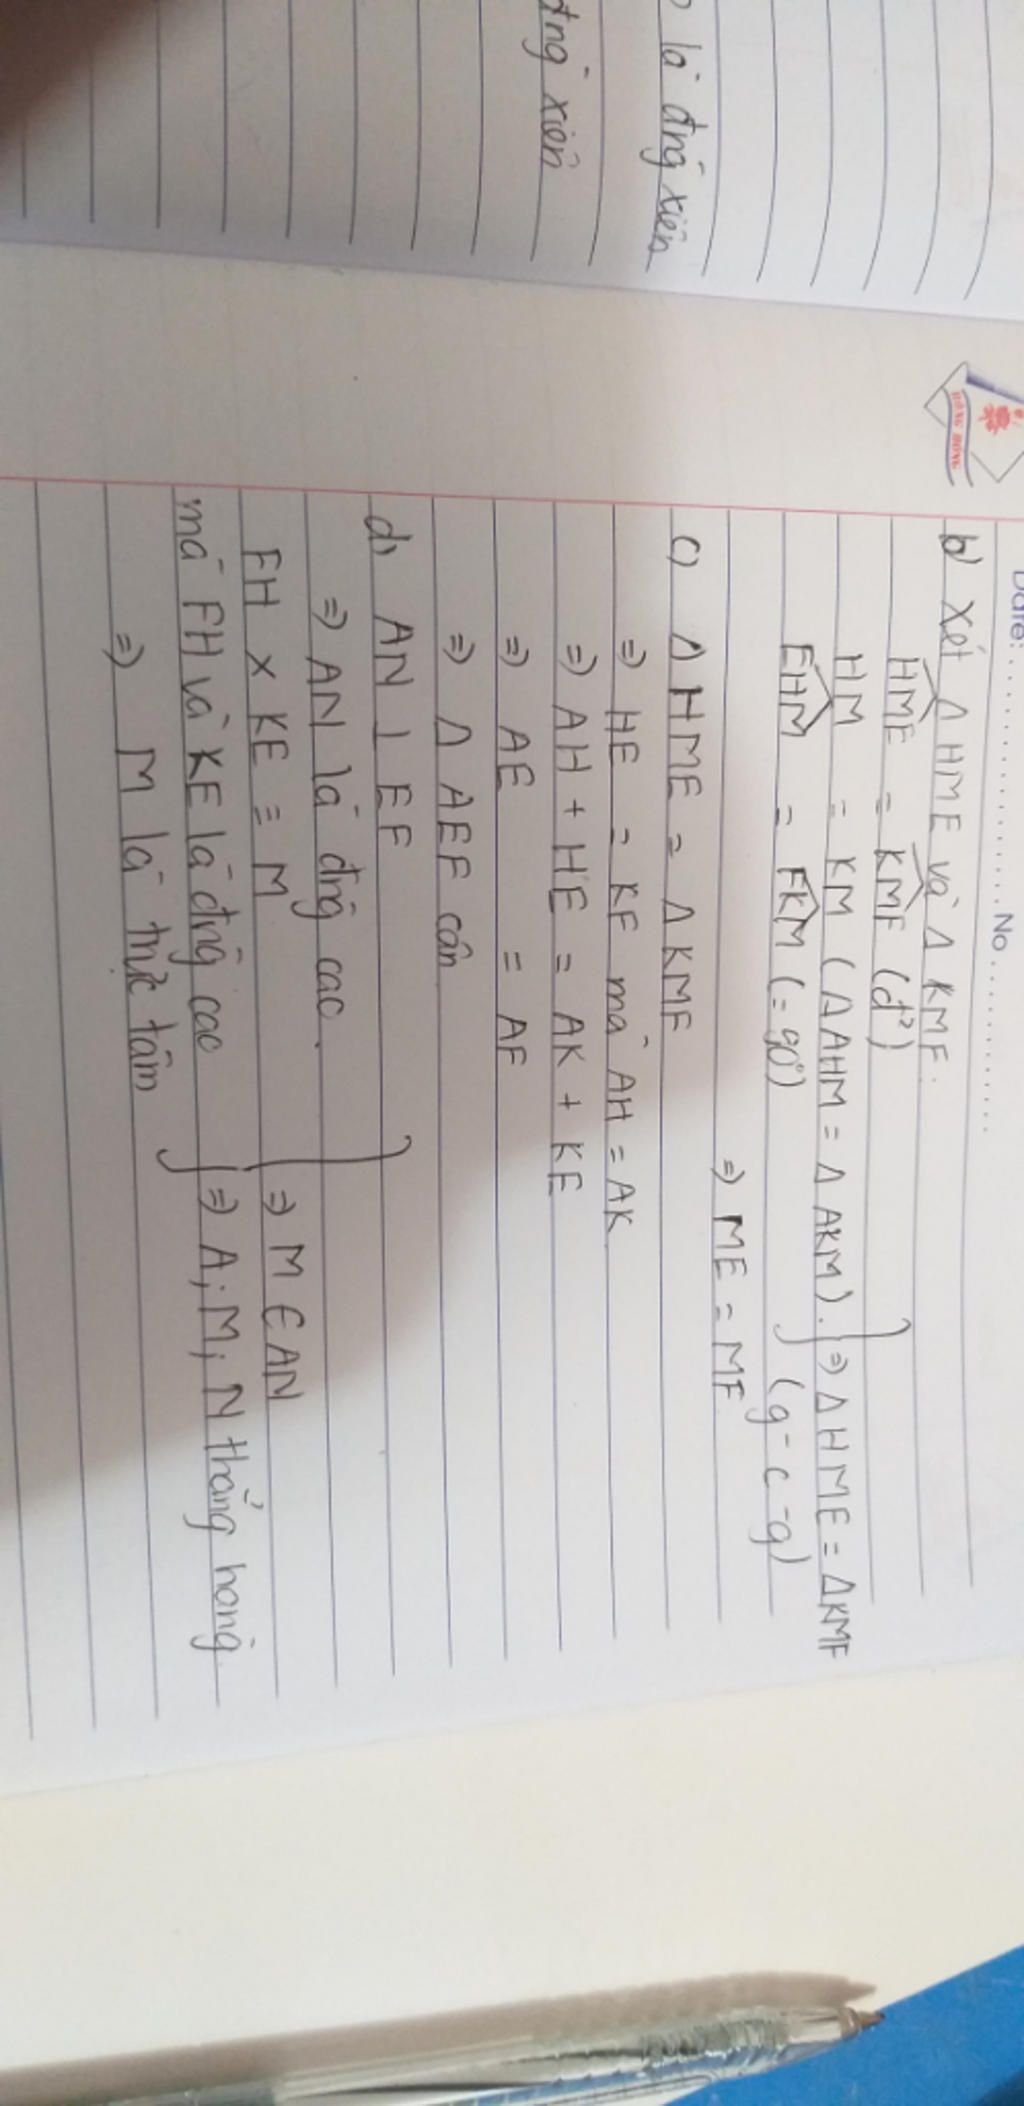 là đng xiên
đng xiên
HỒNG
Date: No
b) Xét Δ HME và Δ KMF.
HME = KMF (đ²)
HM = KM (Δ AHM = Δ AKM). => Δ HME = ΔKMF
EHM = FKM (= 90°) (g-c-g)
=> ME = MF
c) Δ HME = Δ KMF
=> HE = KF mà AH = AK
=> AH + HE = AK + KE
=> AE = AF
=> Δ AEF cân
d) AN ⊥ EF
=> AN là đng cao.
FH x KE = M => M ∈ AN
mà FH và KE là đng cao => A; M; N thẳng hàng
=> M là trực tâm